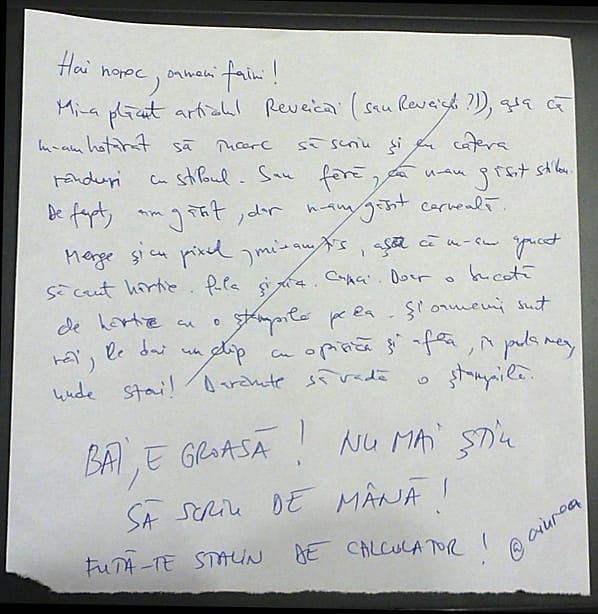 Hai noroc, oameni faini!
Mi-a plăcut articolul Reveicăi (sau Reveichii?!), așa că
m-am hotărât să încerc să scriu și eu câteva
rânduri cu stiloul. Sau fără, că n-am găsit stilou.
De fapt, am găsit, dar n-am găsit cerneală.
Merge și cu pixul, mi-am zis, așa că m-am apucat
să caut hârtie. Pula și aia. Căcai. Doar o bucată
de hârtie cu o ștampilă pe ea. Și oamenii sunt
răi, le dai un clip cu o pisică și află, în pula mea,
unde stai! Darămite să vadă o ștampilă.
BĂI, E GROASĂ! NU MAI ȘTIU
SĂ SCRIU DE MÂNĂ!
FUTĂ-TE STALIN DE CALCULATOR! @aiurea